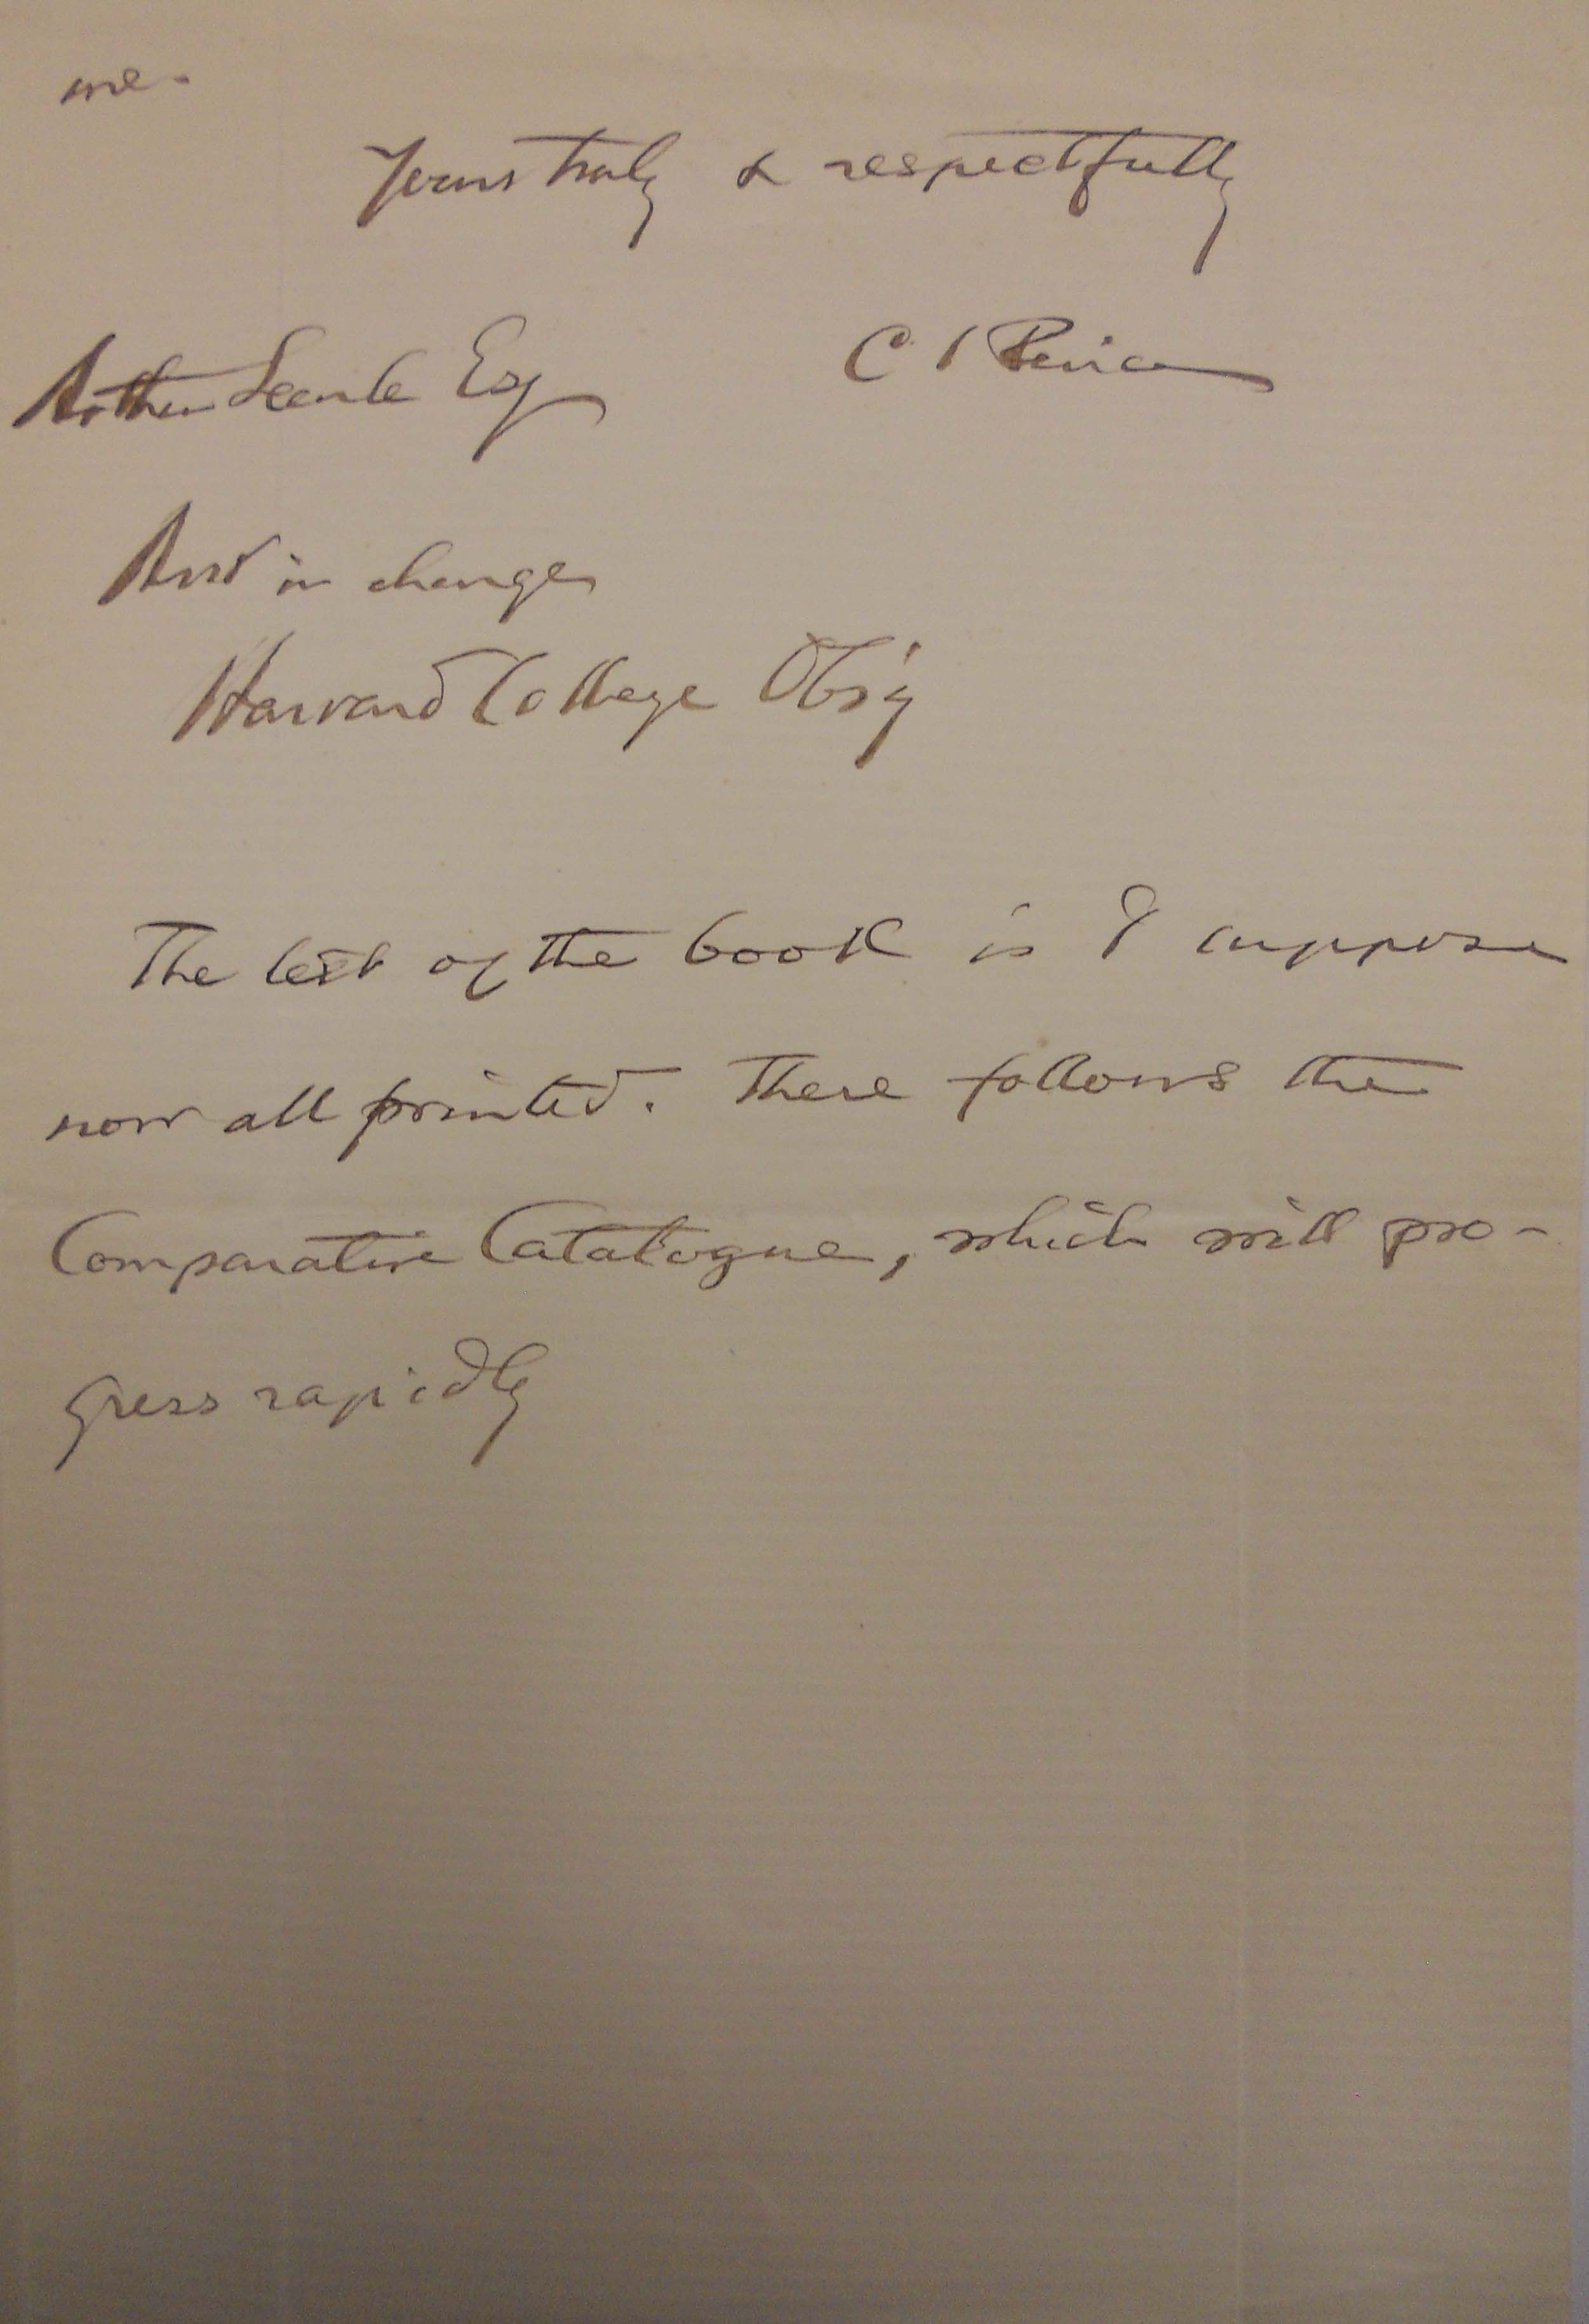 me.
Yours truly & respectfully
C S Peirce
Arthur Searle Esq
Asst in charge
Harvard College Obs'y
The text of the book is I suppose
now all printed. There follows the
Comparative Catalogue, which will pro-
gress rapidly